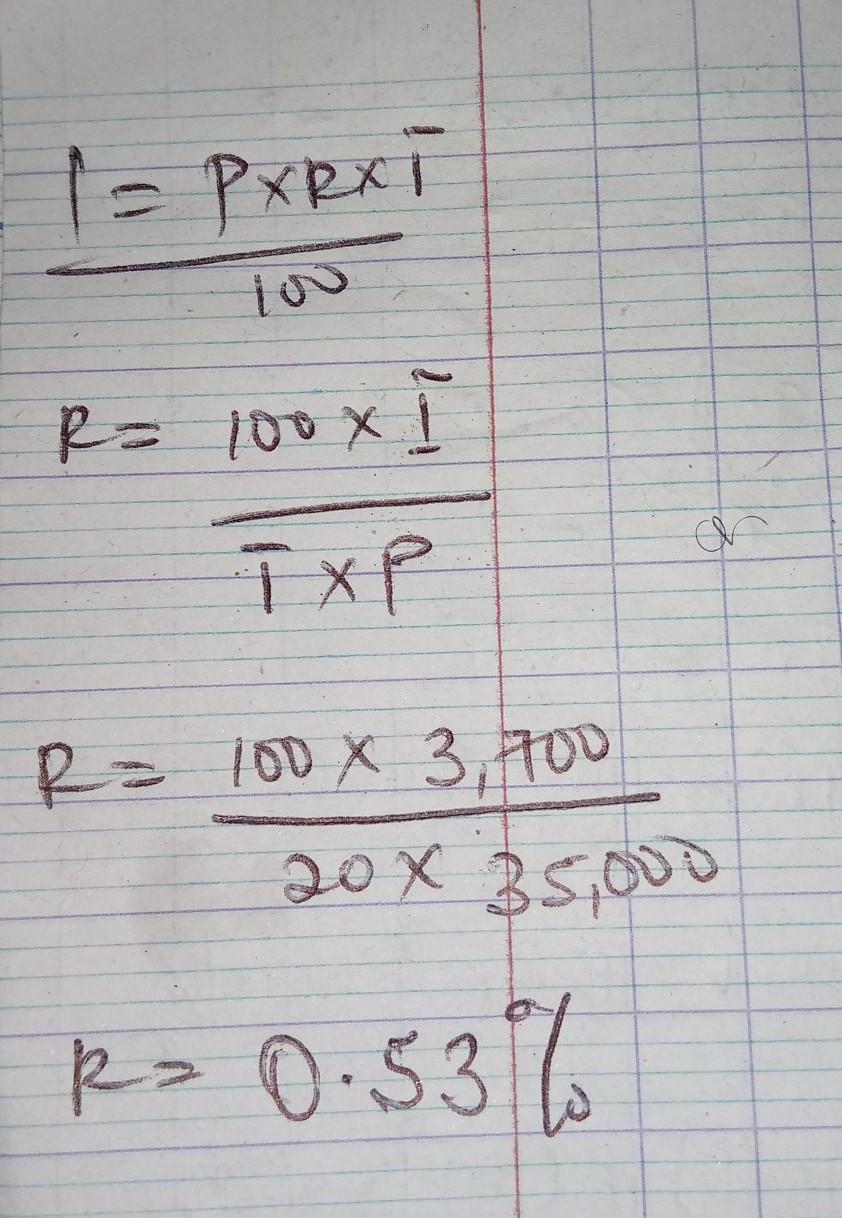 I = P x R x T
100
R = 100 x I
T x P
R = 100 x 3,700
20 x 35,000
R = 0.53%